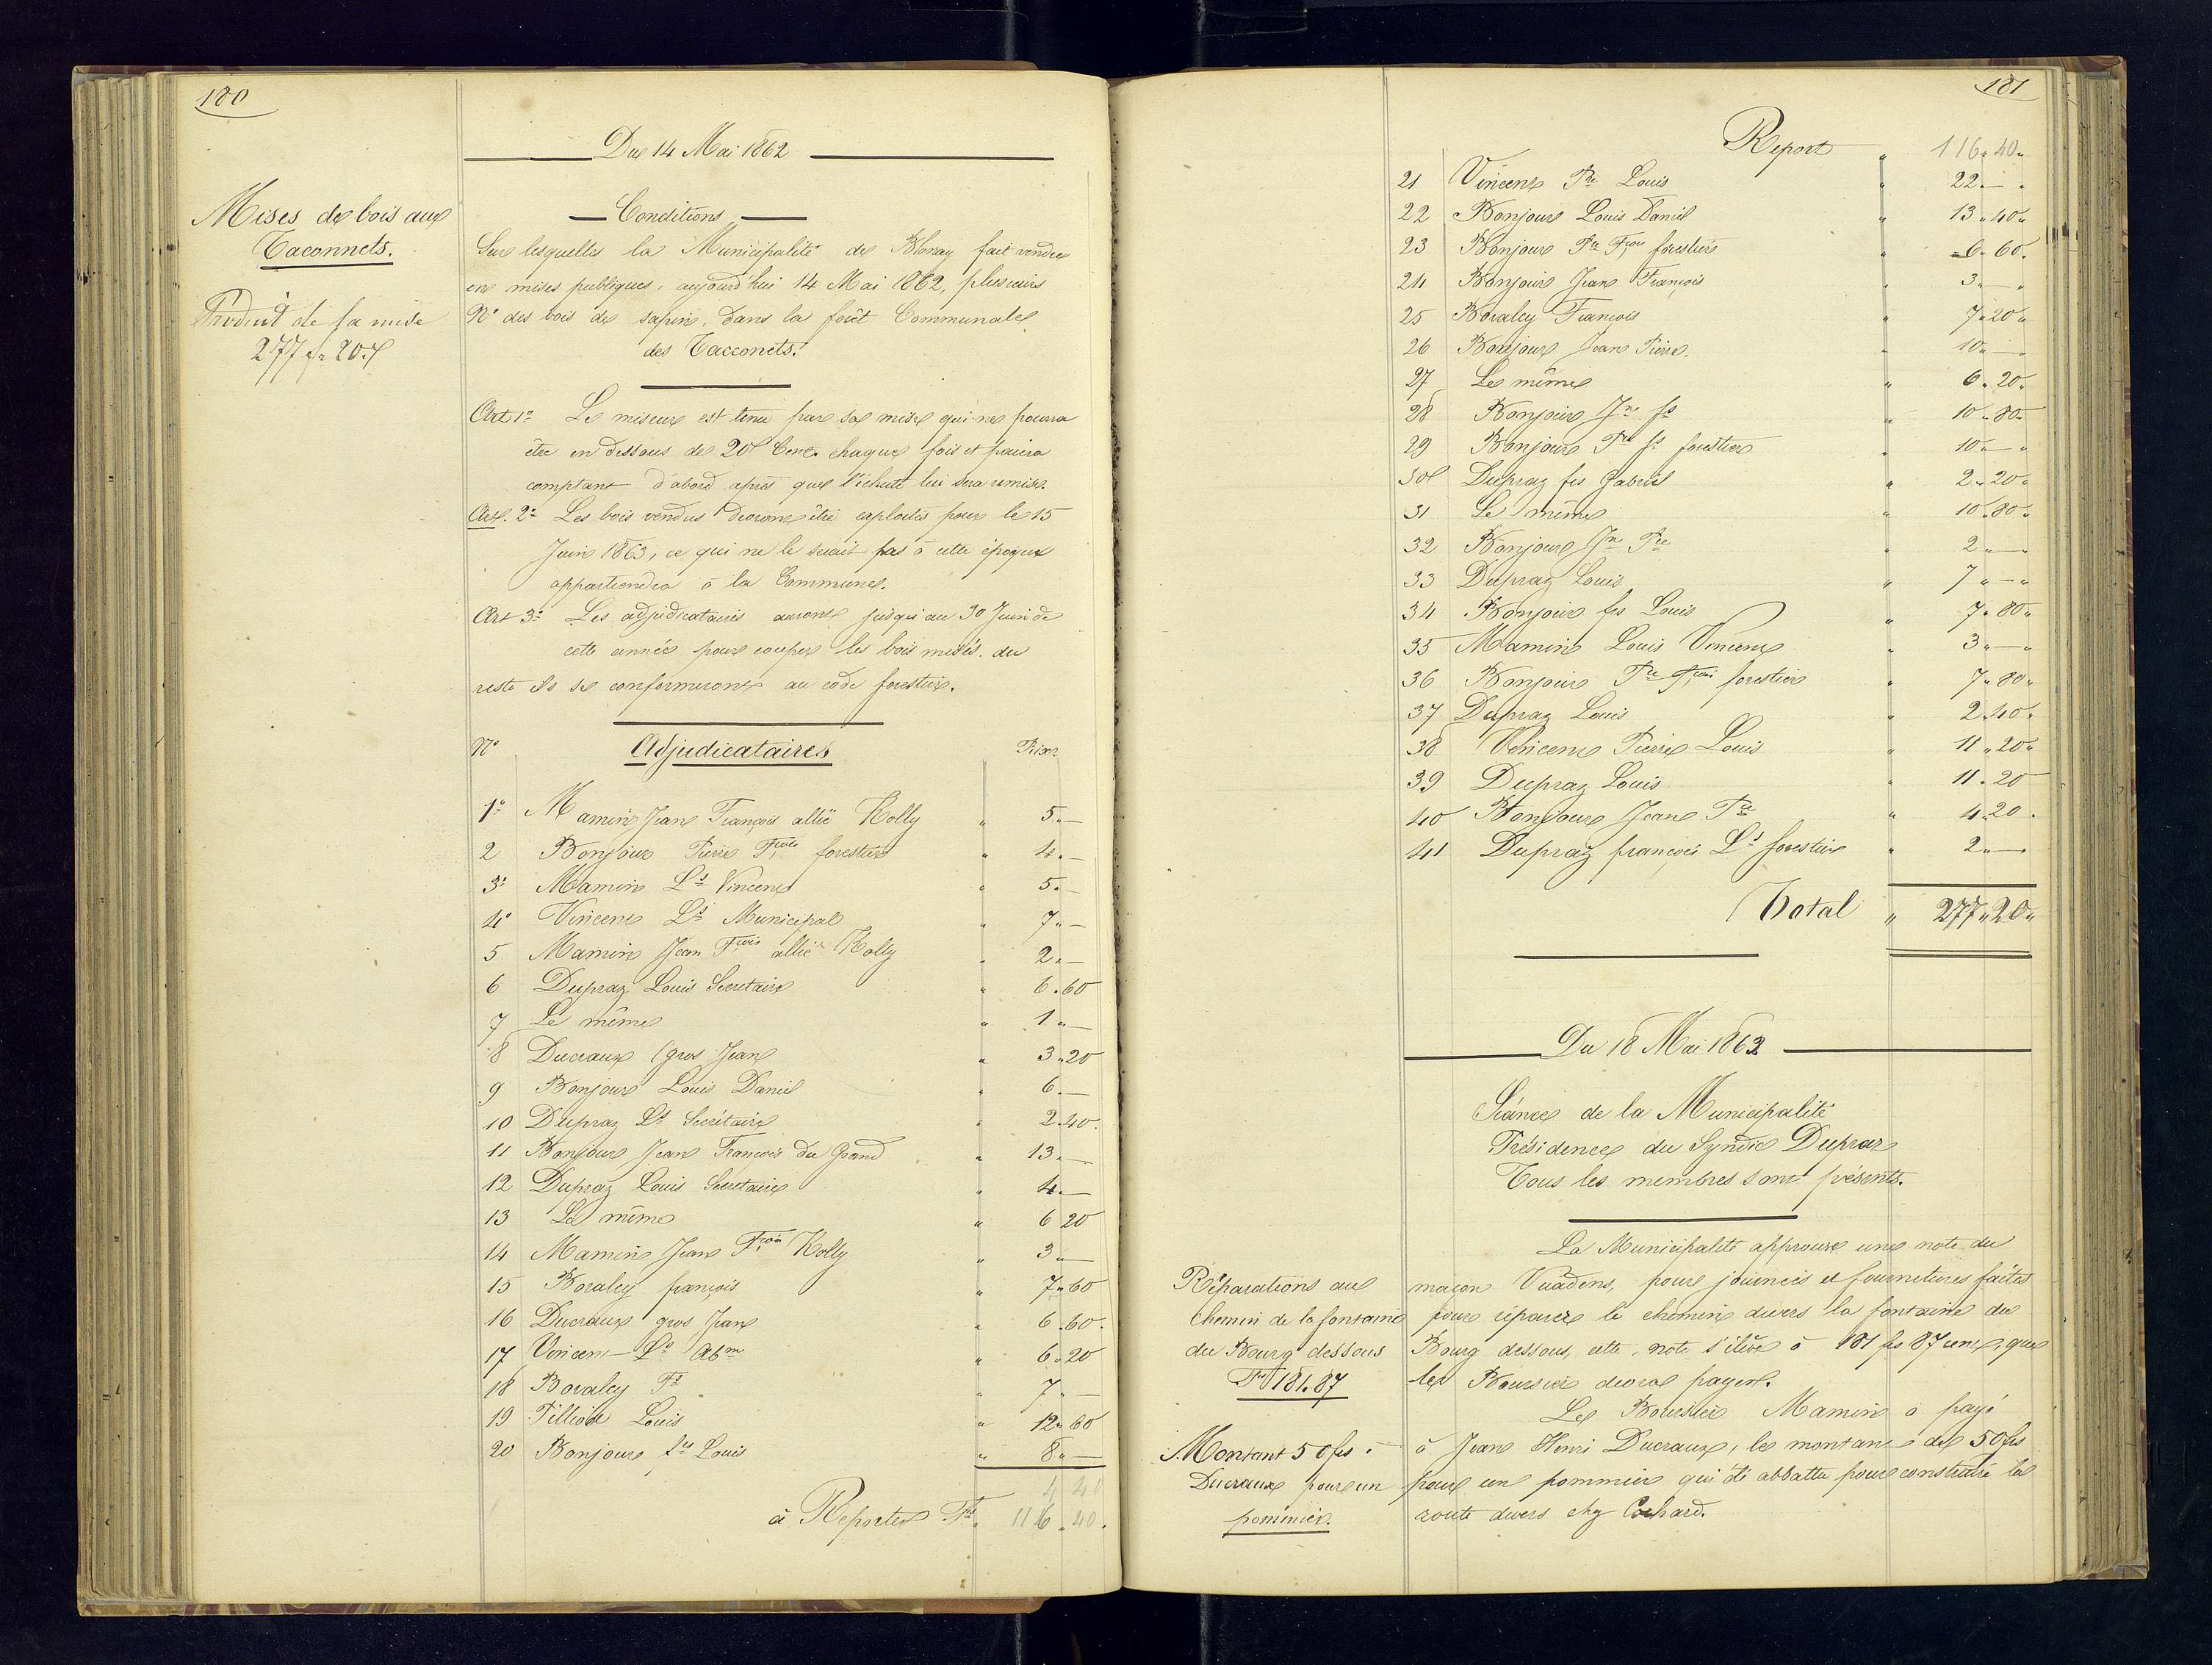 180
Du 14 Mai 1862
Mises de bois aux
Taconnets.
Produit de la mise
277 fr 20 c
Conditions
Sur lesquelles la Municipalité de Blonay fait vendre
en mises publiques, aujourd'hui 14 Mai 1862, plusieurs
N° des bois de sapin, dans la forêt Communale
des Tacconets.
Art 1° Le miseur est tenu par sa mise qui ne pourra
être en dessous de 20 Cent. chaque fois et paiera
comptant d'abord après que l'échute lui sera remise.
Art. 2° Les bois vendus devront être exploités pour le 15
Juin 1863, ce qui ne le serait pas à cette époque
appartiendra à la Commune.
Art 3° Les adjudicataires auront jusqu'au 30 Juin de
cette année pour couper les bois misés. du
reste ils se conformeront au code forestier.
N° Adjudicataires Prix
1° Mamin Jean François allié Kolly " 5 " —
2 Bonjour Pierre Fçois forestier " 4 " —
3° Mamin Ls Vincent " 5 " —
4° Vincent Ls Municipal " 7 " —
5 Mamin Jean Fçois allié Kolly " 2 " —
6 Dupraz Louis Secretaire " 6 " 60
7 Le même " 1 " —
8 Ducraux gros Jean " 3 " 20
9 Bonjour Louis Daniel " 6 " —
10 Dupraz Ls Secrétaire " 2 " 40
11 Bonjour Jean François du Grand " 13 " —
12 Dupraz Louis Secretaire " 4 " —
13 Le même " 6 20
14 Mamin Jean Fçois Kolly " 3 " —
15 Bovaley françois " 7 " 60
16 Ducraux gros Jean " 6 " 60
17 Vincent Ls Abm " 6 " 20
18 Bovaley Fs " 7 " —
19 Pilliod Louis " 12 " 60
20 Bonjour fs Louis " 8 " —
4 20
à Reporter Frs " 116 " 40
181
Report " 116 " 40 "
21 Vincent Pre Louis " 22 " — "
22 Bonjour Louis Daniel " 13 " 40 "
23 Bonjour Pre Fçois forestier " 6 " 60 "
24 Bonjour Jean François " 3 " — "
25 Bovaley François " 7 " 20 "
26 Bonjour Jean Pierre " 10 " — "
27 Le même " 6 " 20 "
28 Bonjour Jn fs " 10 " 80 "
29 Bonjour Pre fs forestier " 10 " — "
30 Dupraz fcs Gabriel " 2 " 20 "
31 Le même " 10 " 80 "
32 Bonjour Jn Pre " 2 " — "
33 Dupraz Louis " 7 " — "
34 Bonjour fcs Louis " 7 " 80 "
35 Mamin Louis Vincent " 3 " — "
36 Bonjour Pre Fçois forestier " 7 " 80 "
37 Dupraz Louis " 2 " 40 "
38 Vincent Pierre Louis " 11 " 20 "
39 Dupraz Louis " 11 " 20
40 Bonjour Jean Pre " 4 " 20 "
41 Dupraz françois Ls forestier " 2 " — "
Total " 277 " 20 "
Du 18 Mai 1862
Séance de la Municipalité
Présidence du Syndic Dupraz
Tous les membres sont présents.
Réparations au
chemin de la fontaine
du Bourg dessous
Fr 181.87
La Municipalité approuve une note du
maçon Vuadens, pour journées et fournitures faites
pour réparer le chemin divers la fontaine du
Bourg dessous, cette note s'élève à 181 frs 87 cent, que
le Boursier devra payer.
Montant 50 frs à
Ducraux pour un
pommier.
Le Boursier Mamin a payé
à Jean Henri Ducraux, le montant de 50 frs
pour un pommier qui été abbattu pour construire la
route divers chez Cochard.